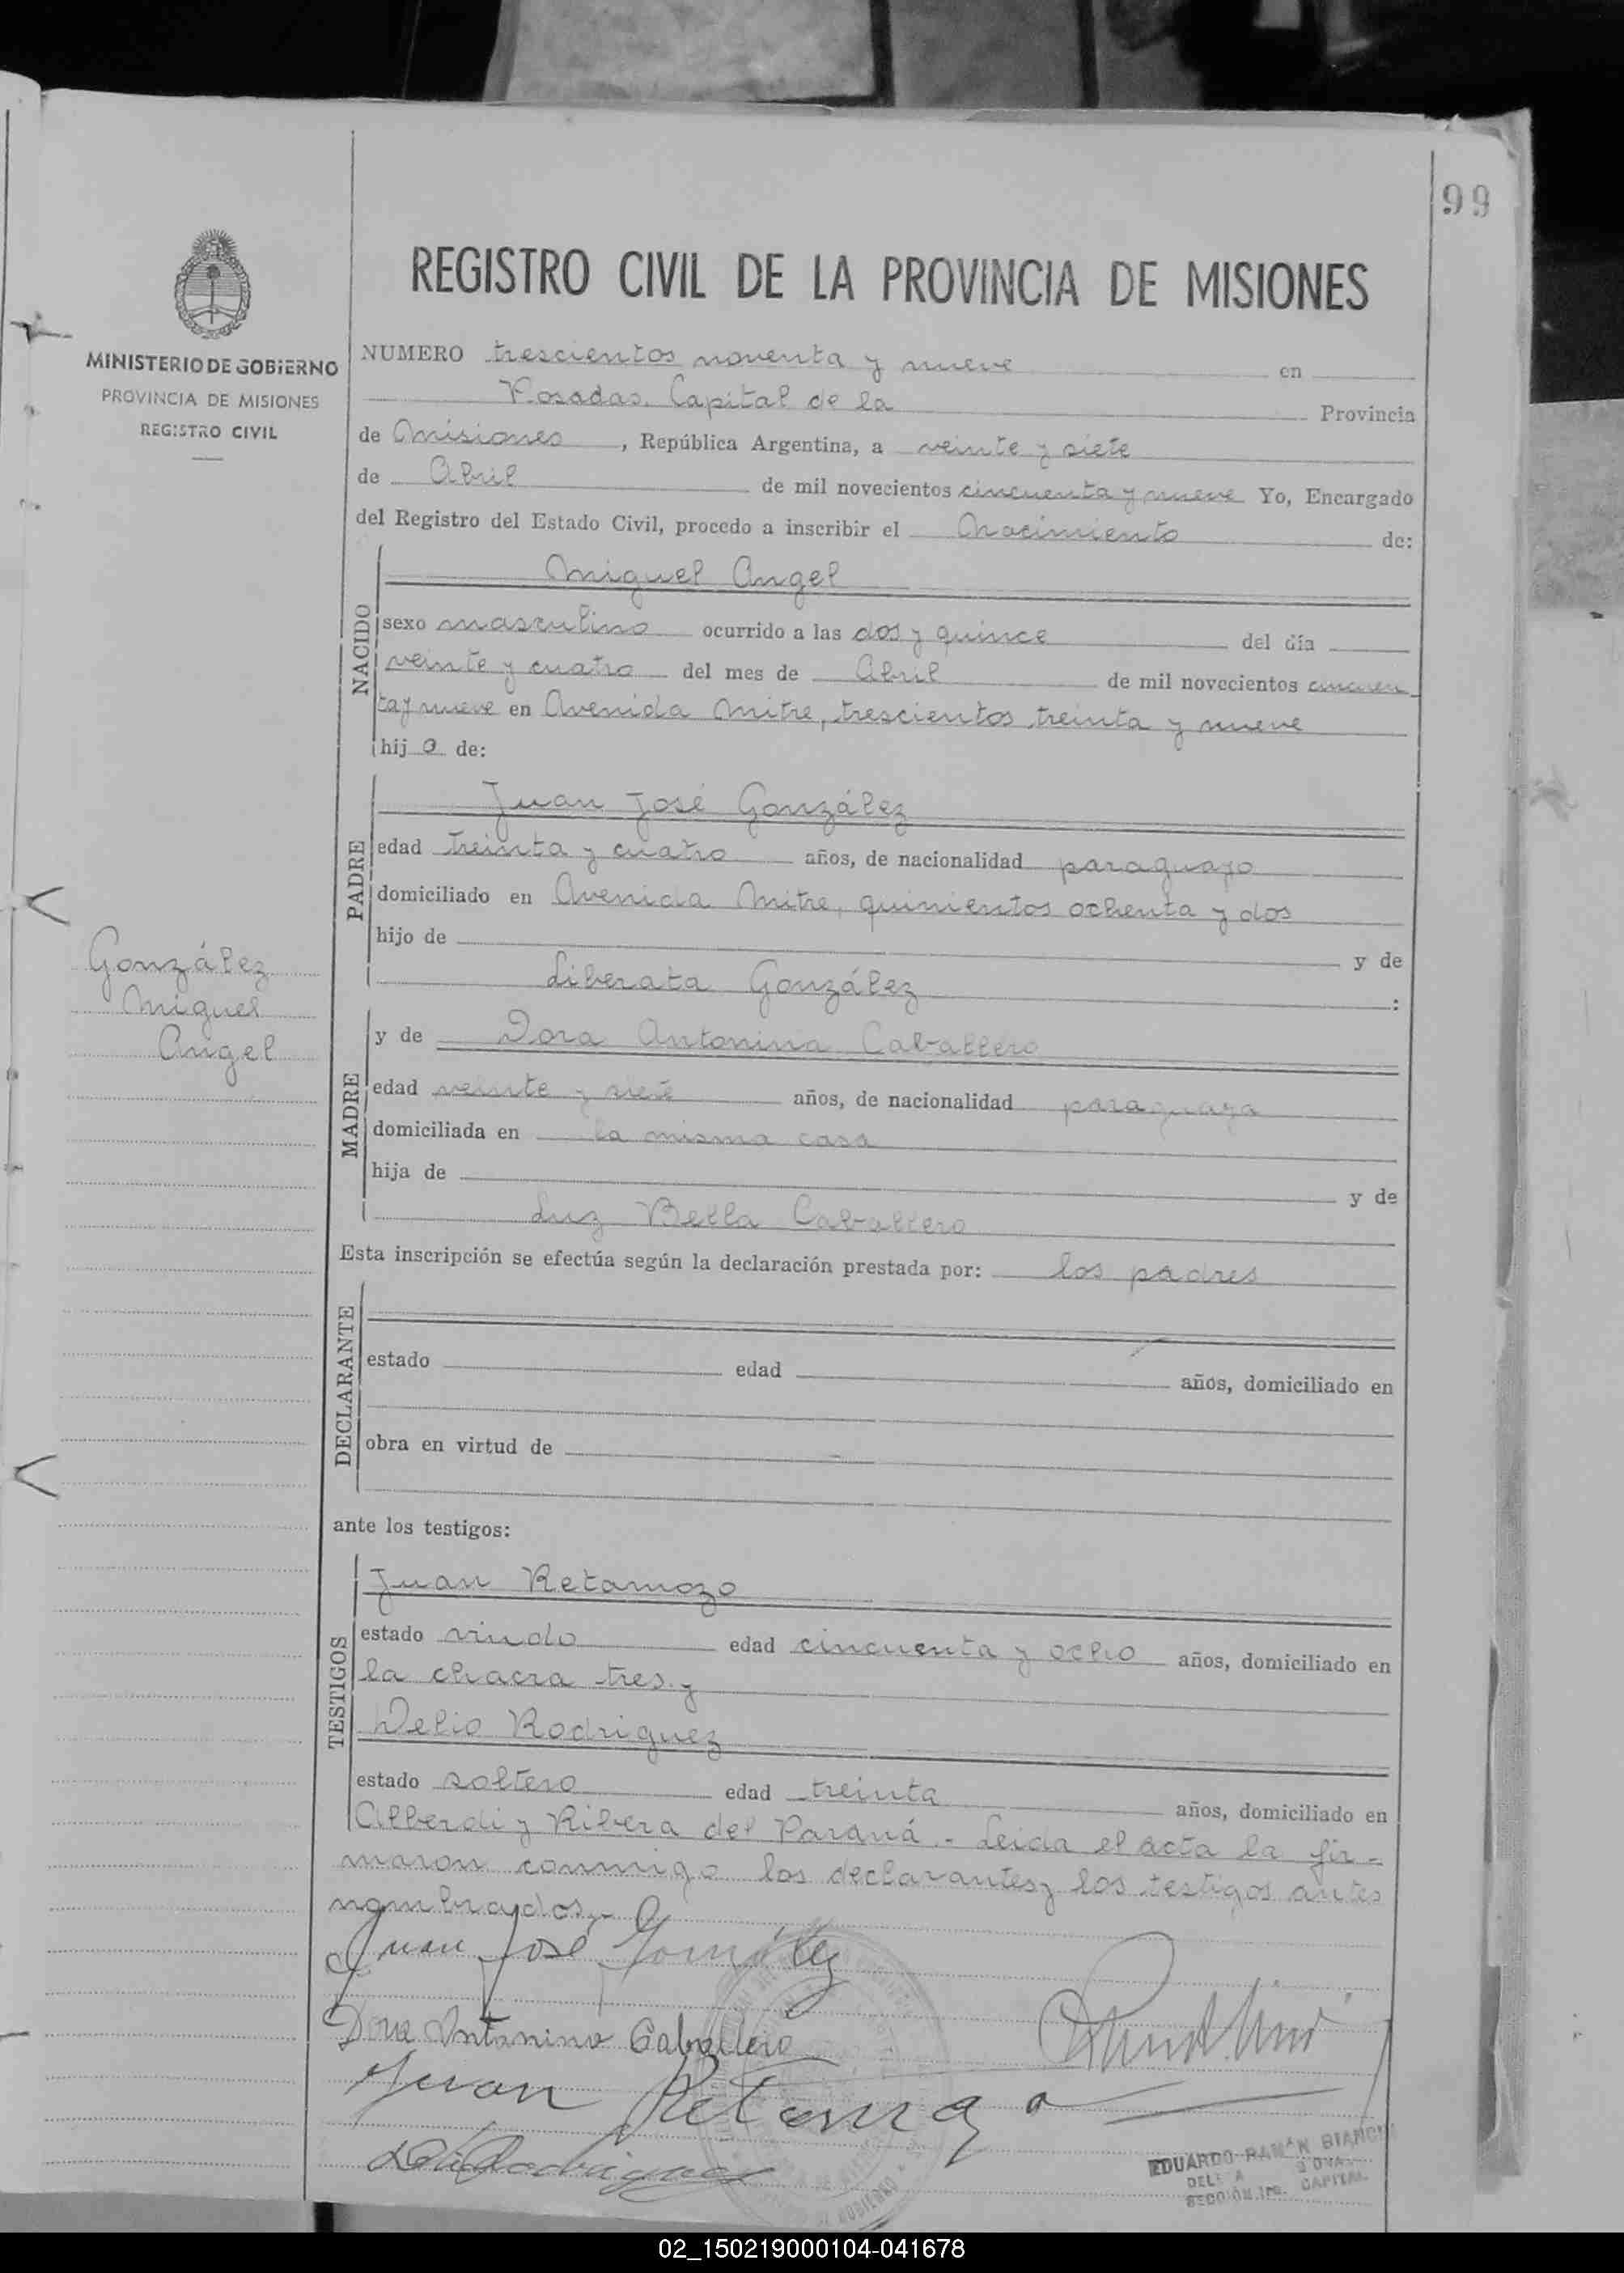 99
REGISTRO CIVIL DE LA PROVINCIA DE MISIONES
MINISTERIO DE GOBIERNO
PROVINCIA DE MISIONES
REGISTRO CIVIL
NUMERO trescientos noventa y nueve en
Posadas. Capital de la Provincia
de Misiones, República Argentina, a veinte y siete
de Abril de mil novecientos cincuenta y nueve Yo, Encargado
del Registro del Estado Civil, procedo a inscribir el Nacimiento de:
NACIDO
Miguel Angel
sexo masculino ocurrido a las dos y quince del día
veinte y cuatro del mes de Abril de mil novecientos cincuen
ta y nueve en Avenida Mitre, trescientos treinta y nueve
hijo de:
PADRE
Juan José González
edad treinta y cuatro años, de nacionalidad paraguayo
domiciliado en Avenida Mitre, quinientos ochenta y dos
hijo de y de
Liberata González :
González
Miguel
Angel
MADRE
y de Dora Antonina Caballero
edad veinte y siete años, de nacionalidad paraguaya
domiciliada en la misma casa
hija de y de
Luz Bella Caballero
Esta inscripción se efectúa según la declaración prestada por: los padres
DECLARANTE
estado edad años, domiciliado en
obra en virtud de
ante los testigos:
TESTIGOS
Juan Retamozo
estado viudo edad cincuenta y ocho años, domiciliado en
la chacra tres. y
Delio Rodriguez
estado soltero edad treinta años, domiciliado en
Alberdi y Ribera del Paraná.- Leida el acta la fir-
maron conmigo los declarantes y los testigos antes
nombrados.-
Juan José González
Dora Antonina Caballero
Juan Retamozo
Rodriguez
EDUARDO RAMÓN BIANCHI
SECCIÓN 1ra. CAPITAL
02_150219000104-041678